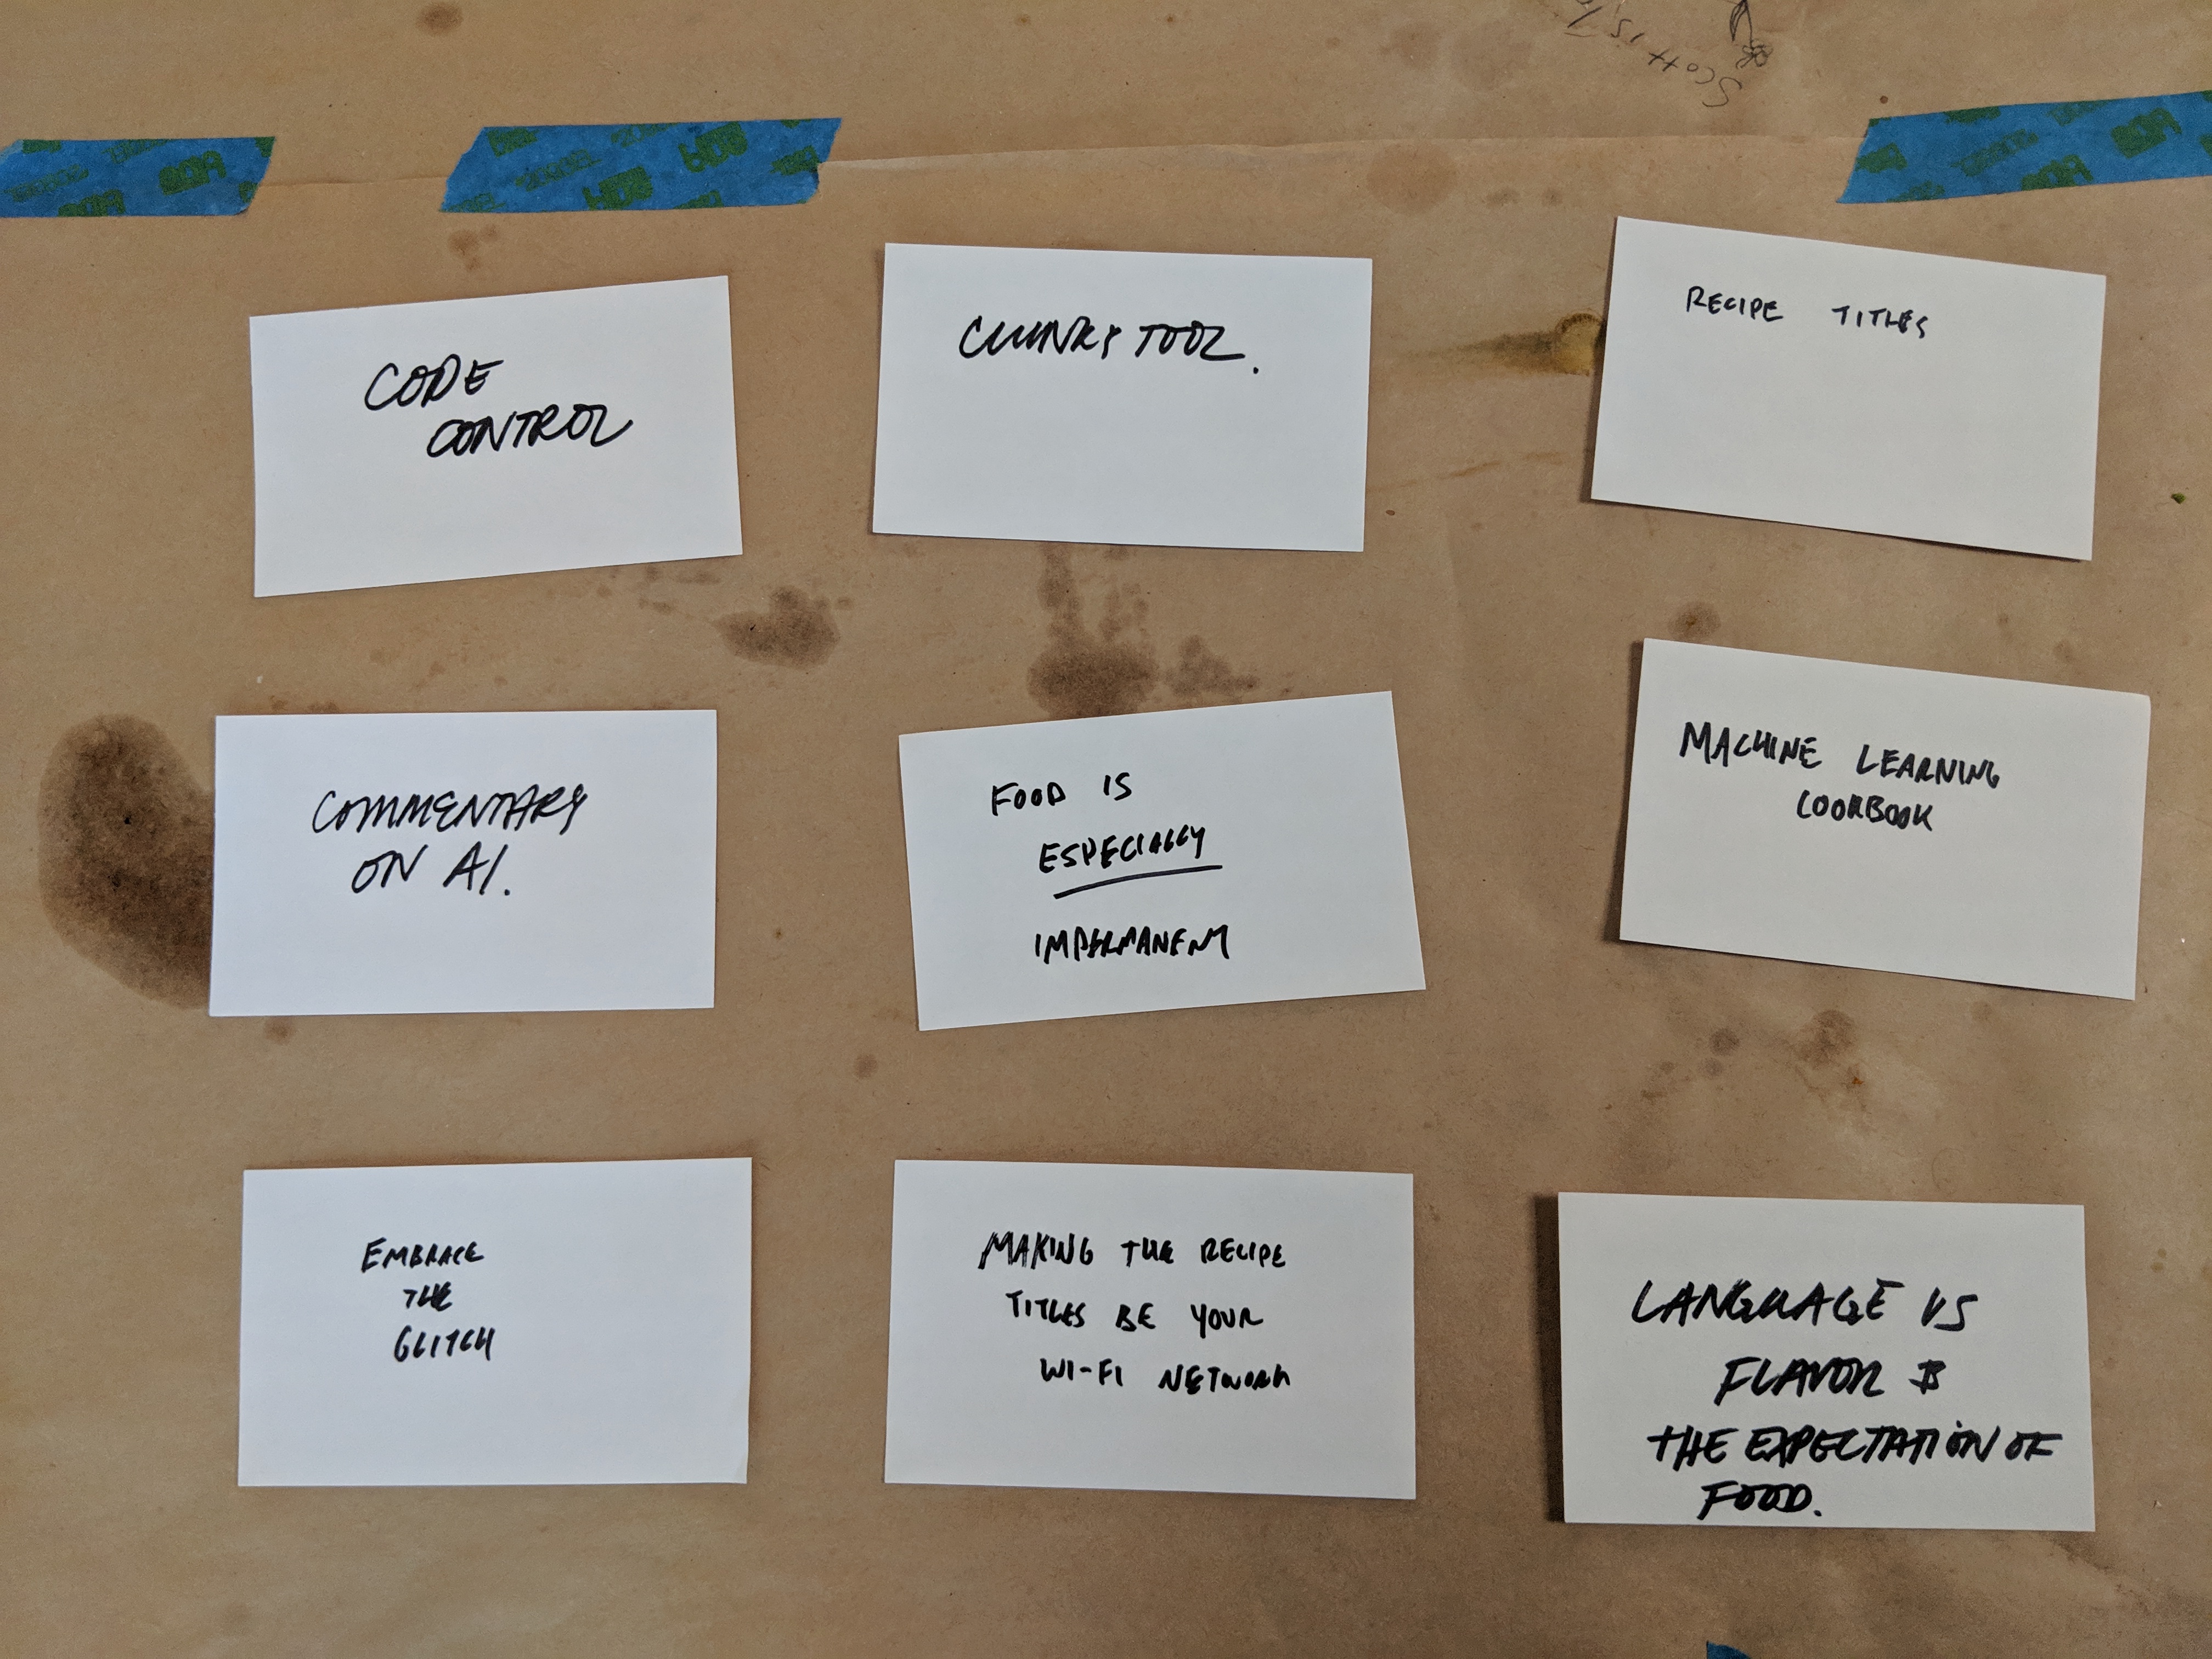 Scott is
CODE
CONTROL
CLUNKY TOOL.
RECIPE TITLES
COMMENTARY
ON AI.
FOOD IS
ESPECIALLY
IMPERMANENT
MACHINE LEARNING
COOKBOOK
EMBRACE
THE
GLITCH
MAKING THE RECIPE
TITLES BE YOUR
WI-FI NETWORK
LANGUAGE VS
FLAVOR &
THE EXPECTATION OF
FOOD.